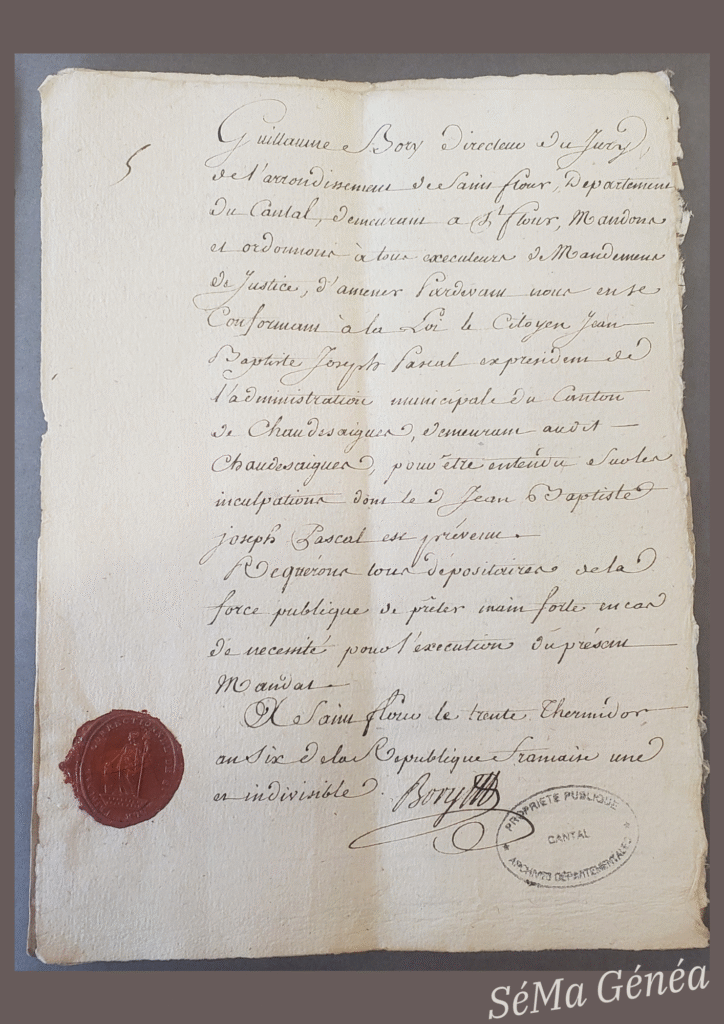 5
Guillaume Bory Directeur du Jury,
de l'arrondissement de Saint flour, Departement
du Cantal, demeurant a St flour, Mandons
et ordonnons à tous executeurs de Mandemens
de Justice, d'amener Pardevant nous en se
Conformant à la Loi le Citoyen Jean
Baptiste Joseph Pascal expresident de
l'administration municipale du Canton
de Chaudesaigues, demeurant audit
Chaudesaigues, pour être entendu sur les
inculpations dont le d Jean Baptiste
joseph Pascal est prévenu.
Requérons tous dépositaires de la
force publique de prêter main forte en cas
de necessité pour l'execution du présent
Mandat
A Saint flour le trente Thermidor
an Six de la Republique francaise une
et indivisible. Bory
PROPRIÉTÉ PUBLIQUE
CANTAL
ARCHIVES DÉPARTEMENTALES
SéMa Généa